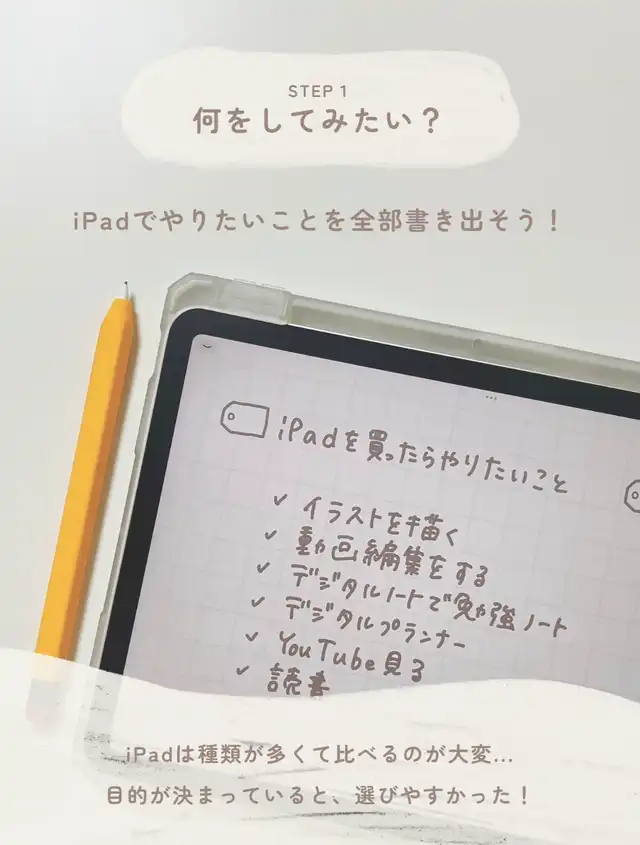 STEP 1
何をしてみたい？
iPadでやりたいことを全部書き出そう！
iPadを買ったらやりたいこと
✓ イラストを描く
✓ 動画編集をする
✓ デジタルノートで勉強ノート
✓ デジタルプランナー
✓ YouTube見る
✓ 読書
iPadは種類が多くて比べるのが大変...
目的が決まっていると、選びやすかった！